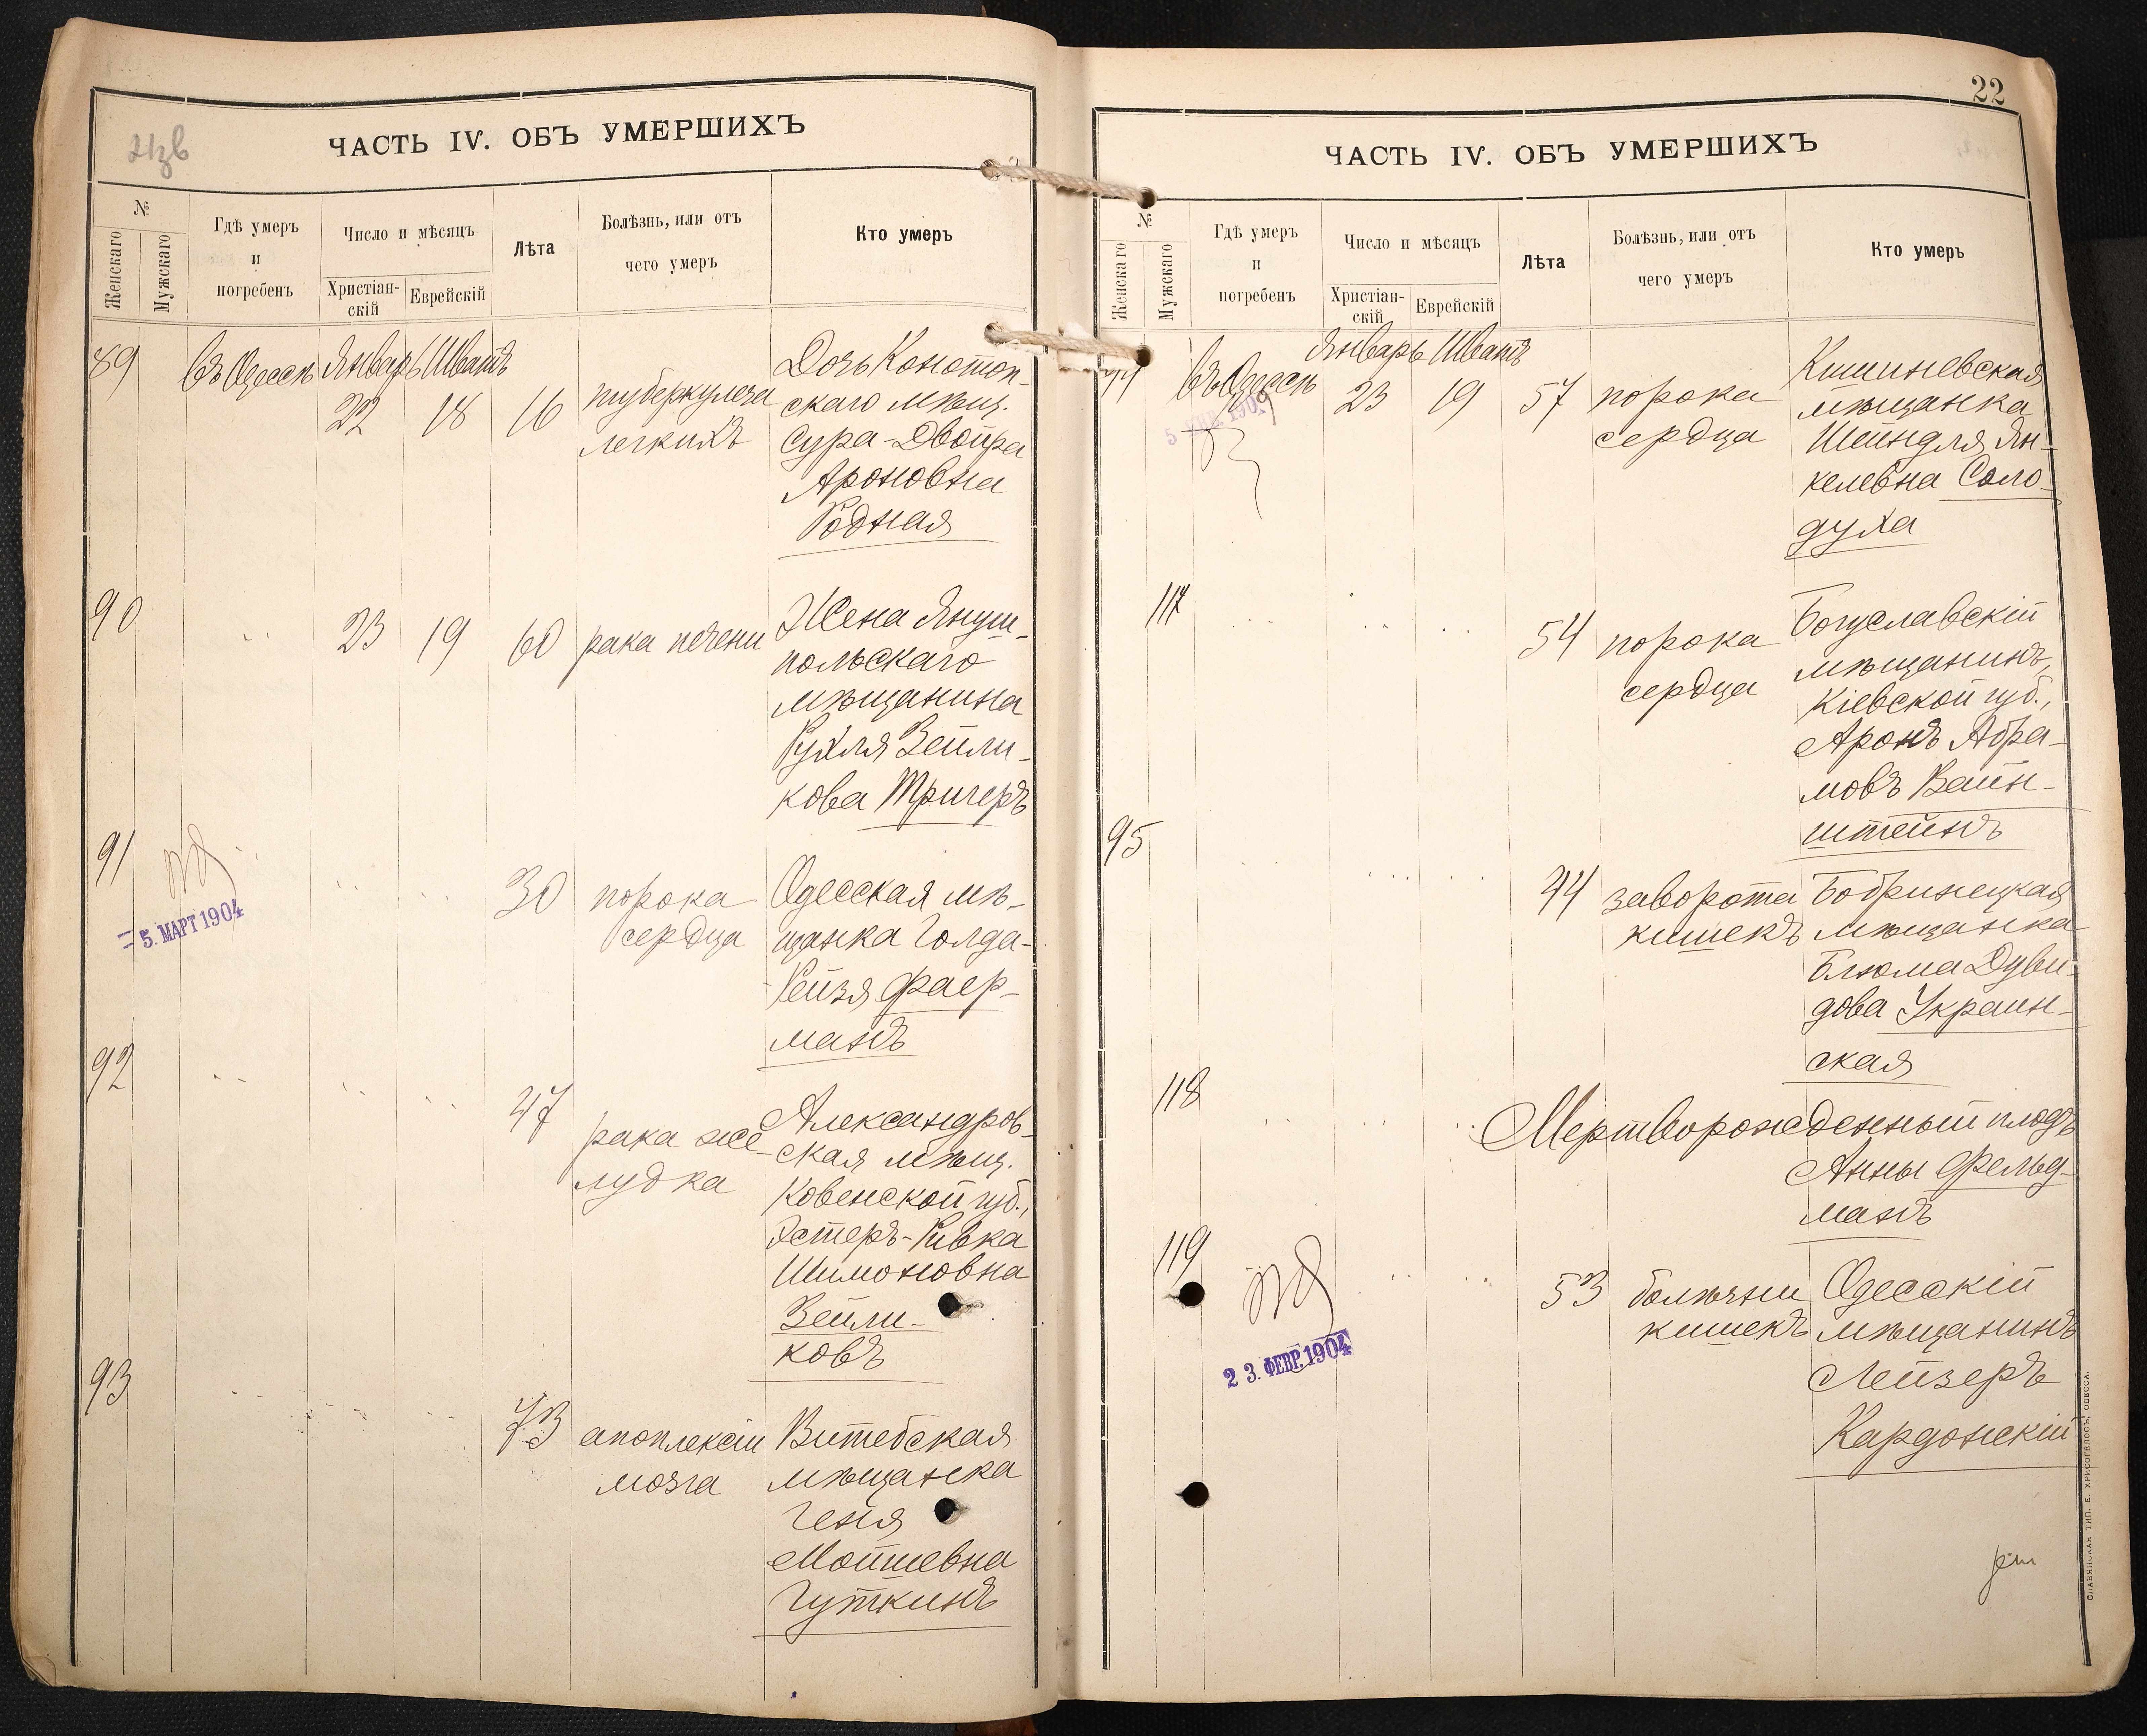 ЧАСТЬ IV. ОБЪ УМЕРШИХЪ
№
Женскаго
Мужскаго
Гдѣ умеръ
и
погребенъ
Число и мѣсяцъ
Христіан-
скій
Еврейскій
Лѣта
Болѣзнь, или отъ
чего умеръ
Кто умеръ
89
въ Одессѣ
Январь
Шватъ
22
18
16
туберкулеза
легкихъ
Дочь Конотоп-
скаго мѣщ.
Сура-Двойра
Ароновна
Родная
90
23
19
60
рака печени
Жена Януш-
польскаго
мѣщанина
Рухля Зейли-
кова Тригеръ
91
5. МАРТ 1904
30
порока
сердца
Одесская мѣ-
щанка Голда-
Рейзя Фаер-
манъ
92
47
рака же-
лудка
Александров-
ская мѣщ.
Ковенской губ.,
Эстеръ-Ривка
Шимоновна
Зейли-
ковъ
93
73
апоплексіи
мозга
Витебская
мѣщанка
Геня
Мойшевна
Гуткинъ
22
ЧАСТЬ IV. ОБЪ УМЕРШИХЪ
№
Женскаго
Мужскаго
Гдѣ умеръ
и
погребенъ
Число и мѣсяцъ
Христіан-
скій
Еврейскій
Лѣта
Болѣзнь, или отъ
чего умеръ
Кто умеръ
94
въ Одессѣ
Январь
Шватъ
23
19
57
порока
сердца
Кишиневская
мѣщанка
Шейндля Ян-
келевна Соло-
духа
117
54
порока
сердца
Богуславскій
мѣщанинъ,
Кіевской губ.,
Аронъ Абра-
мовъ Вайн-
штейнъ
95
44
заворота
кишекъ
Бобринецкая
мѣщанка
Блюма Дуви-
дова Украин-
ская
118
Мертворожденный плодъ
Анны Фельд-
манъ
119
23. ФЕВР. 1904
53
болѣзни
кишекъ
Одесскій
мѣщанинъ
Лейзеръ
Кардонскій
СЛАВЯНСКАЯ ТИП. Е. ХРИСОГЕЛОСЪ, ОДЕССА.